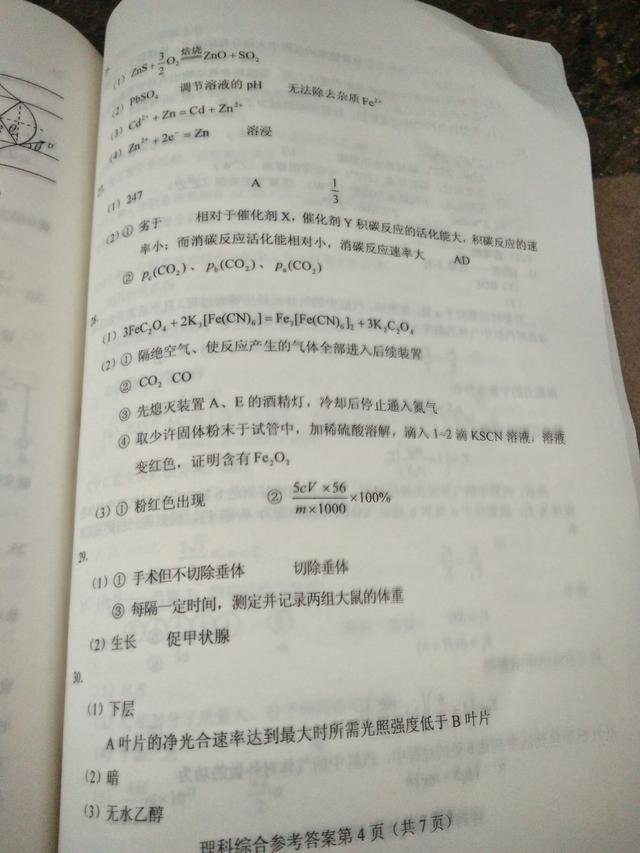 (1) ZnS+3/2 O₂ 焙烧 ═ ZnO+SO₂
(2) PbSO₄ 调节溶液的 pH 无法除去杂质 Fe²⁺
(3) Cd²⁺+Zn=Cd+Zn²⁺
(4) Zn²⁺+2e⁻=Zn 溶浸
(1) 247 A 1/3
(2) ① 劣于 相对于催化剂 X，催化剂 Y 积碳反应的活化能大，积碳反应的速
率小；而消碳反应活化能相对小，消碳反应速率大 AD
② pc(CO₂)、pb(CO₂)、pa(CO₂)
28.
(1) 3FeC₂O₄+2K₃[Fe(CN)₆]=Fe₃[Fe(CN)₆]₂+3K₂C₂O₄
(2) ① 隔绝空气、使反应产生的气体全部进入后续装置
② CO₂ CO
③ 先熄灭装置 A、E 的酒精灯，冷却后停止通入氮气
④ 取少许固体粉末于试管中，加稀硫酸溶解，滴入 1-2 滴 KSCN 溶液，溶液
变红色，证明含有 Fe₂O₃
(3) ① 粉红色出现 ② 5cV×56/m×1000 ×100%
29.
(1) ① 手术但不切除垂体 切除垂体
③ 每隔一定时间，测定并记录两组大鼠的体重
(2) 生长 促甲状腺
30.
(1) 下层
A 叶片的净光合速率达到最大时所需光照强度低于 B 叶片
(2) 暗
(3) 无水乙醇
理科综合参考答案第 4 页（共 7 页）